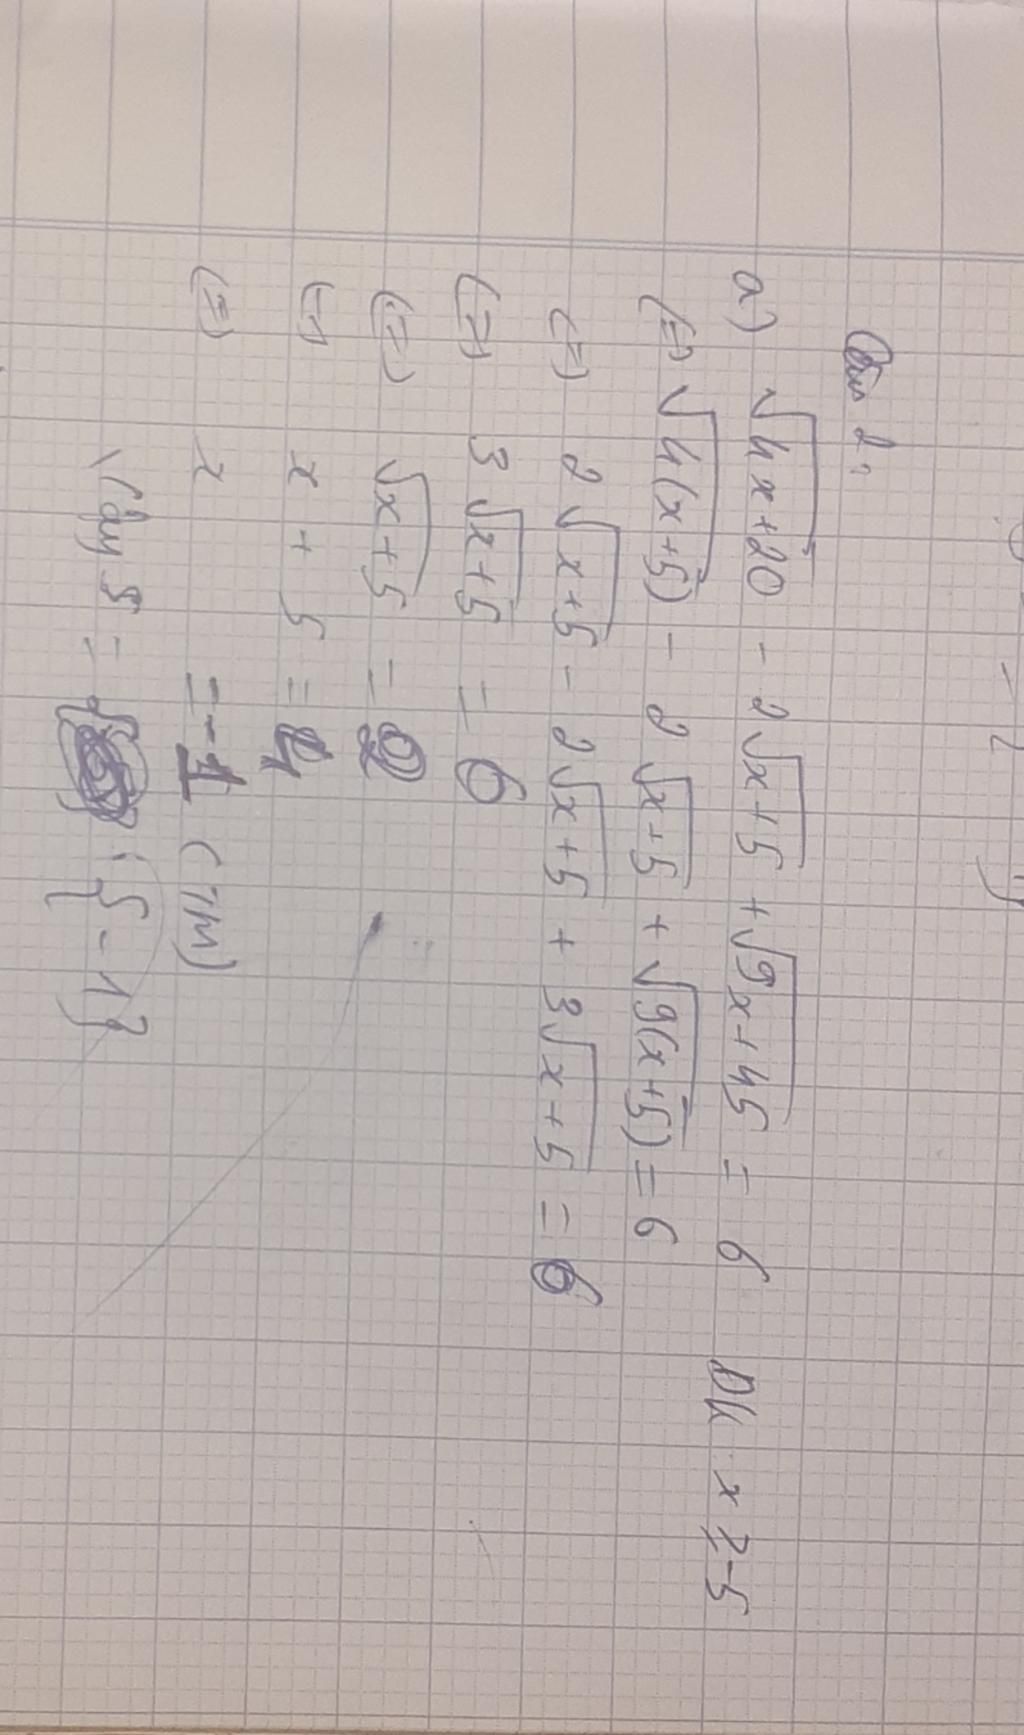 Bài 2:
a) √4x+20 - 2√x+5 + √9x+45 = 6 ĐK: x ≥ -5
(=) √4(x+5) - 2√x+5 + √9(x+5) = 6
(=) 2√x+5 - 2√x+5 + 3√x+5 = 6
(=) 3√x+5 = 6
(=) √x+5 = 2
(=) x + 5 = 4
(=) x = -1 (TM)
Vậy S = {-1}